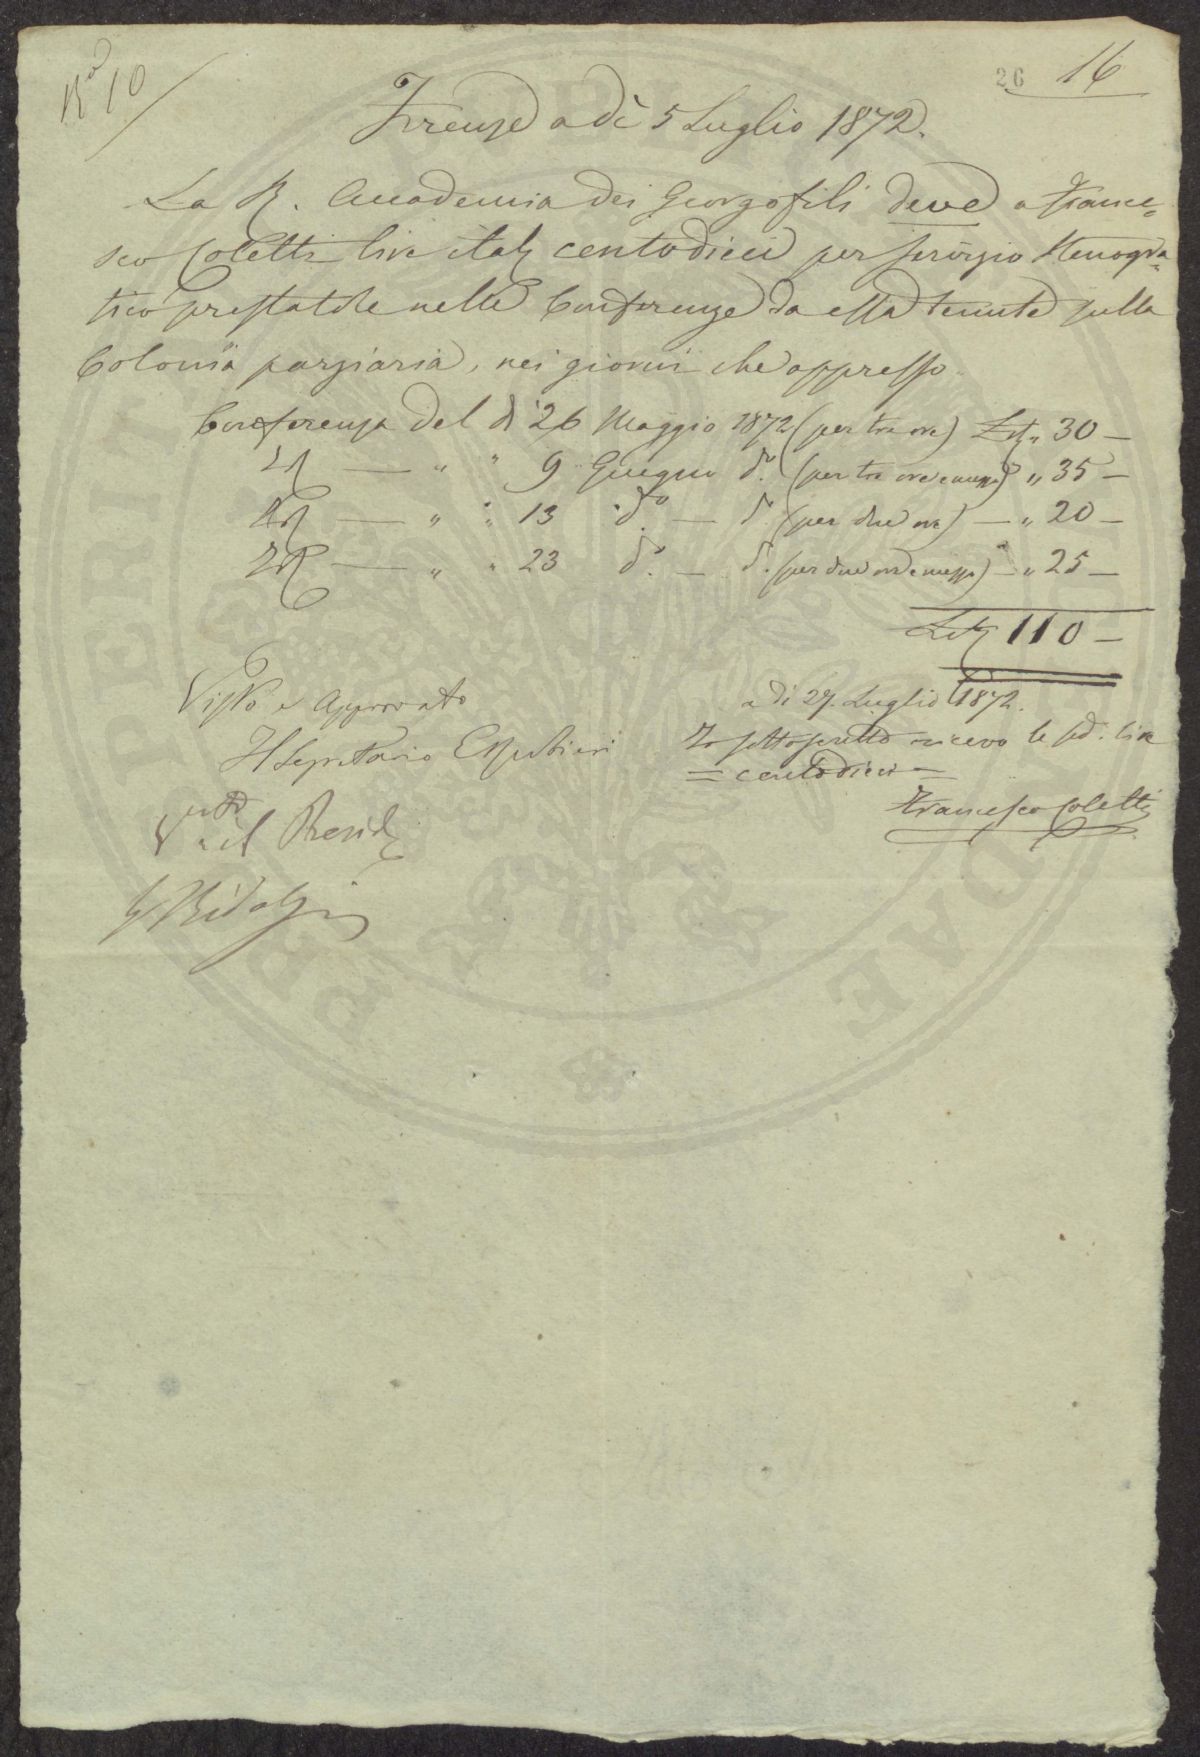 N.º 10
26 16
Firenze a dì 5 Luglio 1872.
La R. Accademia dei Georgofili deve a France=
sco Coletti lire ital. centodieci per servizio Stenogra=
fico prestatole nelle Conferenze da essa tenute sulla
Colonia parziaria, nei giorni che appresso.
Conferenza del dì 26 Maggio 1872 (per tre ore) Lit. „ 30 —
Id. — „ „ 9 Giugno d.º (per tre ore e mezzo) „ 35 —
Id. — „ „ 13 d.º — d.º (per due ore) — „ 20 —
Id. — „ „ 23 d.º — d.º (per due ore e mezzo) — „ 25 —
Lit. 110 —
Visto e Approvato
Il Segretario
Visto il Presid.
Ridolfi
a dì 27. Luglio 1872.
Io sottoscritto ricevo le sud. lire
= centodieci =
Francesco Coletti
PRO